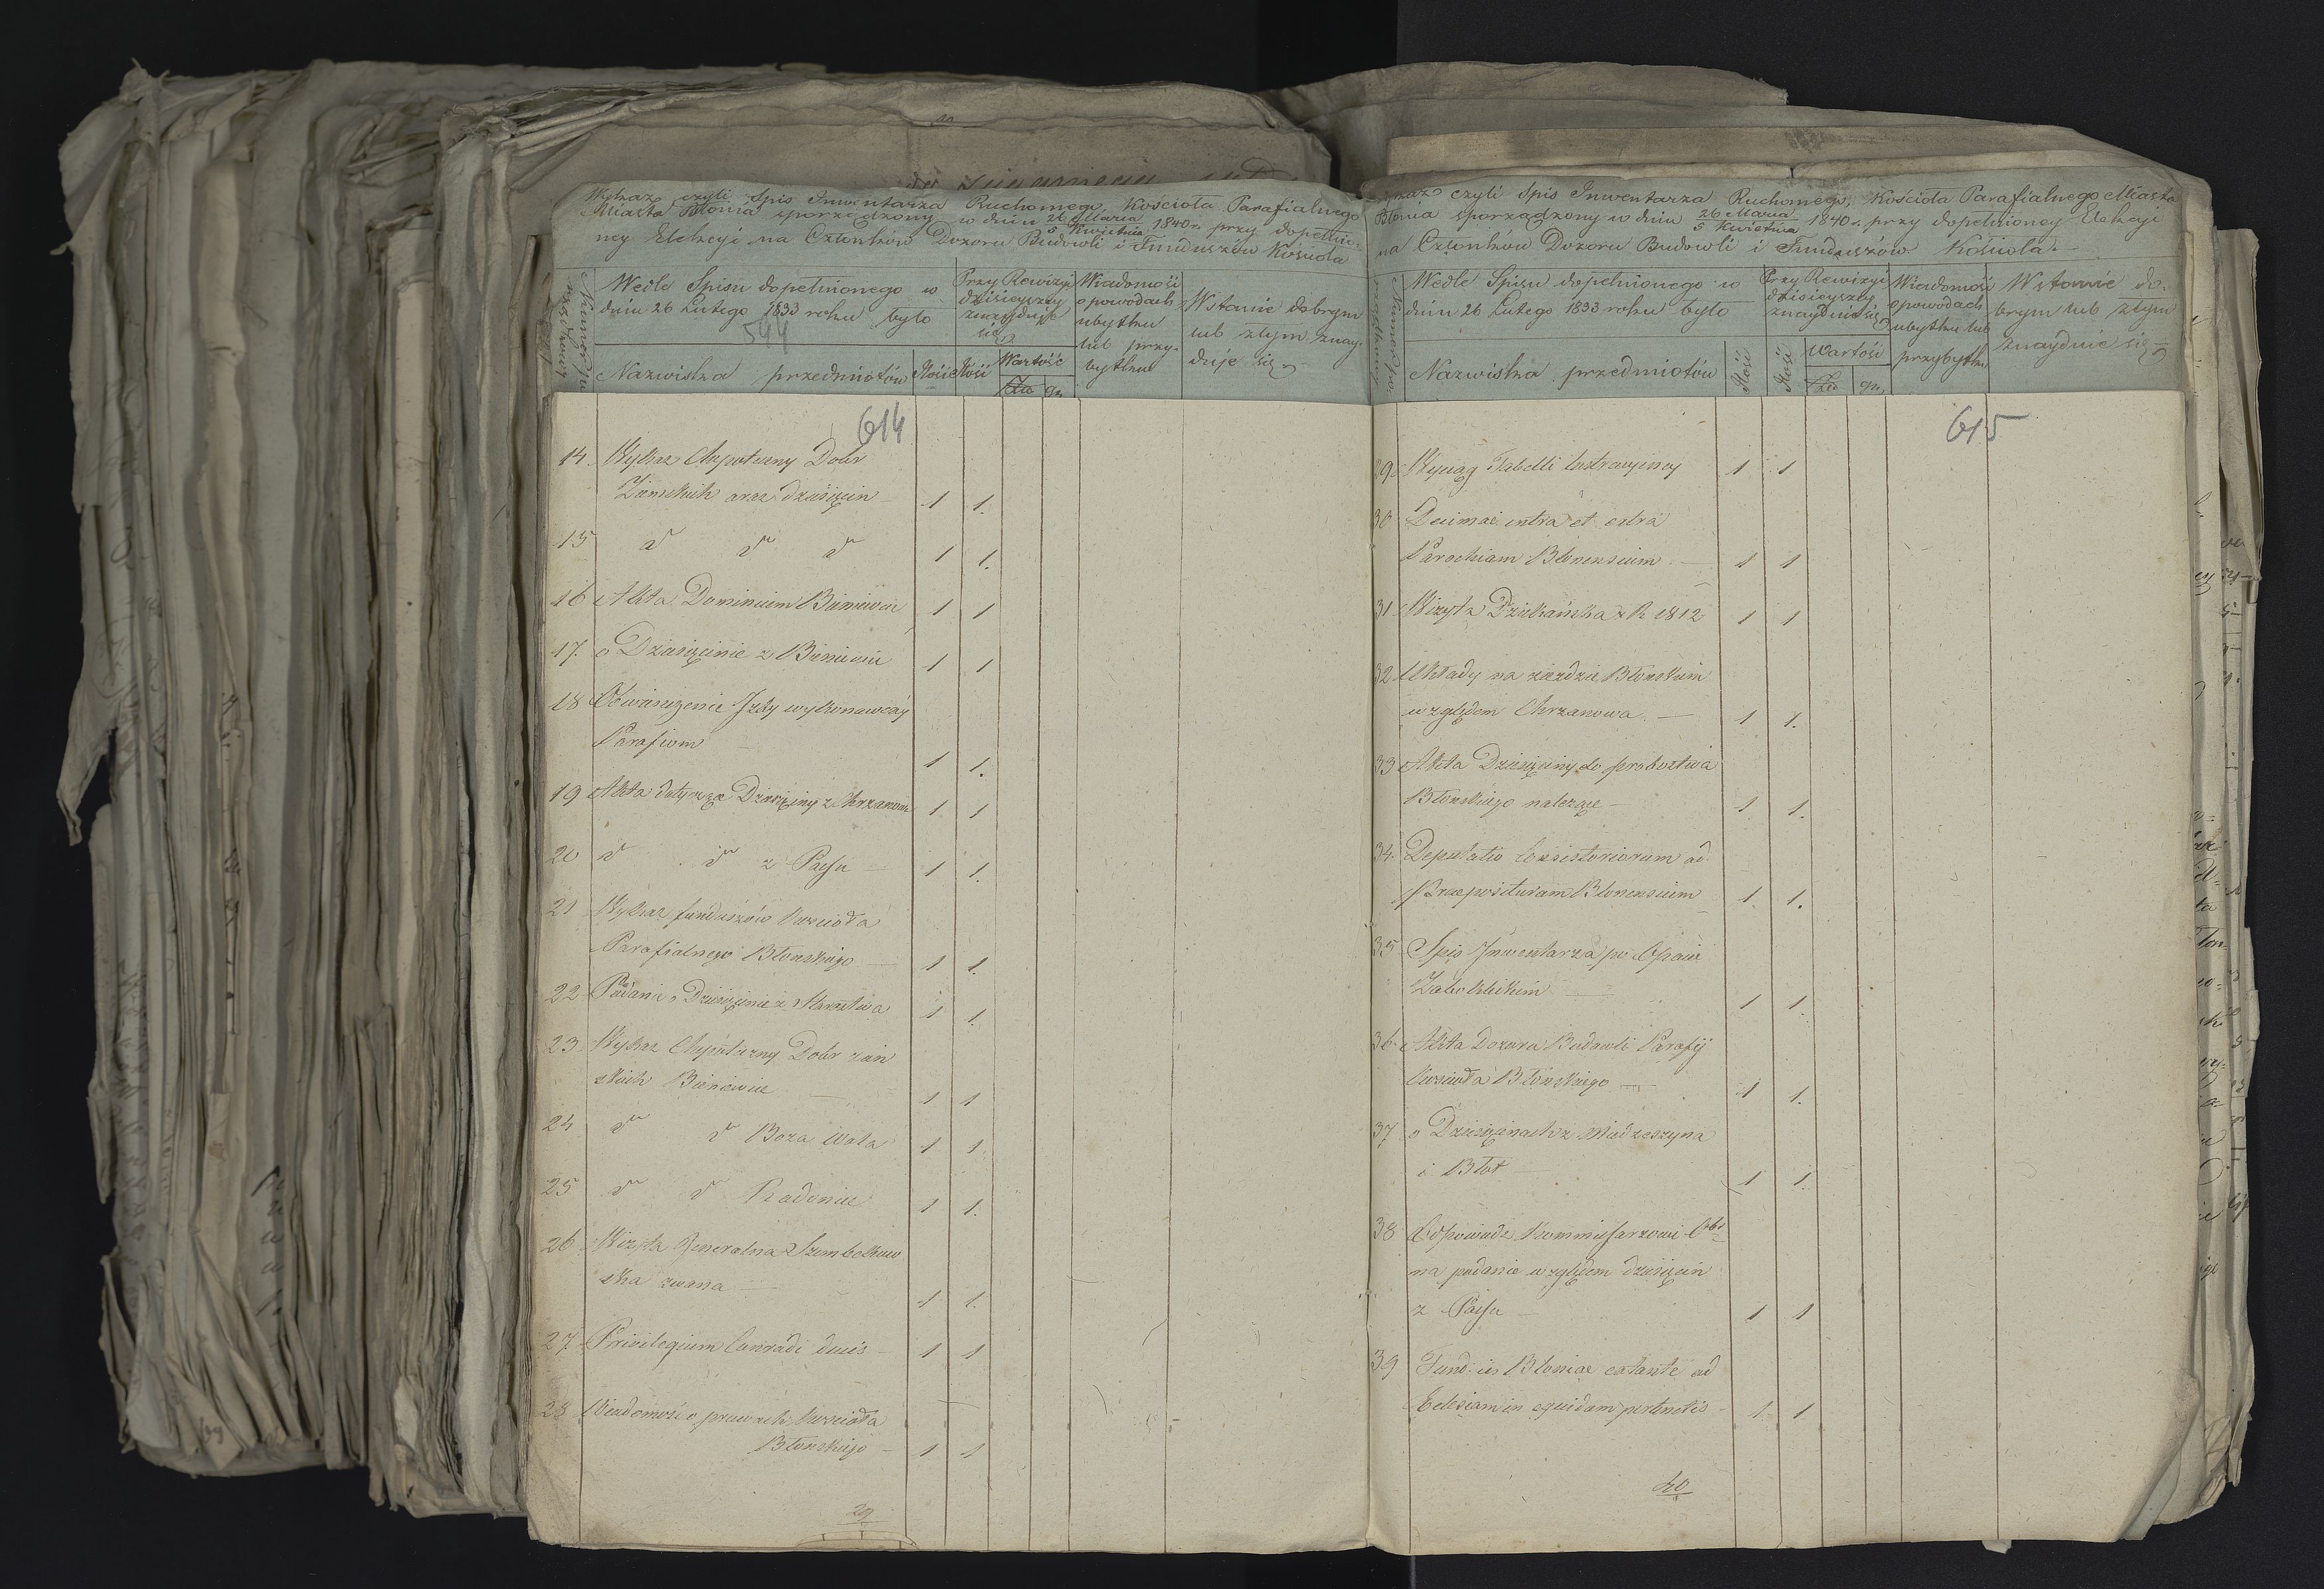 Wykaz czyli Spis Inwentarza Ruchomego, Kościoła Parafialnego
Miasta Błonia sporządzony w dniu 26 Marca / 5 Kwietnia 1840 r. przy dopełnio-
ney Elekcyi na Członków Dozoru Budowli i Funduszów Kościoła
Wedle Spisu dopełnionego w
dniu 26 Lutego 1833 roku było
544
Nazwiska przedmiotów
Ilość
Przy Rewizyi
dzisieyszéy
znayduje
się
Ilość
Wartość
Złto gr.
Wiadomość
o powodach
ubytku
lub przy-
bytku
W stanie dobrym
lub złym znay-
duje się
614
14. Wykaz Chypoteczny Dobr
Ziemskich oraz dziesięcin 1 1.
15 dº dº dº 1 1.
16 Akta Dominium Bieniewic 1 1
17. o Dziesięcinie z Bieniewic 1 1
18 Obwieszczenie Izby wykonawczéy
Parafiom 1 1.
19 Akta dotyczące Dziesięciny z Chrzanowa 1 1
20 dº dº z Passu 1 1.
21 Wykaz funduszów Kościoła
Parafialnego Błonskiego 1 1.
22 Podanie o Dziesięcinie z 1 1.
23 Wykaz Chypoteczny Dobr ziem
skich Bieniewic 1 1
24 dº dº Boza Wola 1 1
25 dº dº Radonice 1 1.
26 Wizyta Generalna Szembekow
ska zwana 1 1.
27 Privilegium Conradi ducis 1 1
28 Wiadomość o prawach Kościoła
Błonskiego 1 1
29
Wykaz czyli Spis Inwentarza Ruchomego, Kościoła Parafialnego Miasta
Błonia sporządzony w dniu 26 Marca / 5 Kwietnia 1840 r. przy dopełnioney Elekcyi
na Członków Dozoru Budowli i Funduszów Kościoła.
Wedle Spisu dopełnionego w
dniu 26 Lutego 1833 roku było
Nazwiska przedmiotów
Ilość
Przy Rewizyi
dzisieyszéy
znayduie się
Ilość
Wartość
Złto gr.
Wiadomość
o powodach
ubytku lub
przybytku
W stanie do-
brym lub złym
znayduie się
615
29. Wyciąg Tabelli lustracyiney 1 1
30 Decimae intra et extra
Parochiam Blonensium 1 1
31 Wizyta Dziekańska z R. 1812 1 1
32 Układy na zieździe Błonskim
względem Chrzanowa 1 1.
33 Akta Dziesięciny do proboztwa
Błonskiego należące 1 1.
34. Deputatio Consistoriorum ad
Praeposituram Blonensium 1. 1.
35 Spis Inwentarza po Xsiędzu
Zaboklickim 1 1.
36. Akta Dozoru Budowli Parafij
Kościoła Błonskiego 1 1.
37 o Dziesięcinach z Miedzeszyna
i Błot 1 1.
38 Odpowiedz Kommissarzowi Obw
na podanie względem dziesięcin
z Passu 1 1
39 Fund: in Bloniae extante ad
Eclesiam in equidam pertinetis 1 1
40